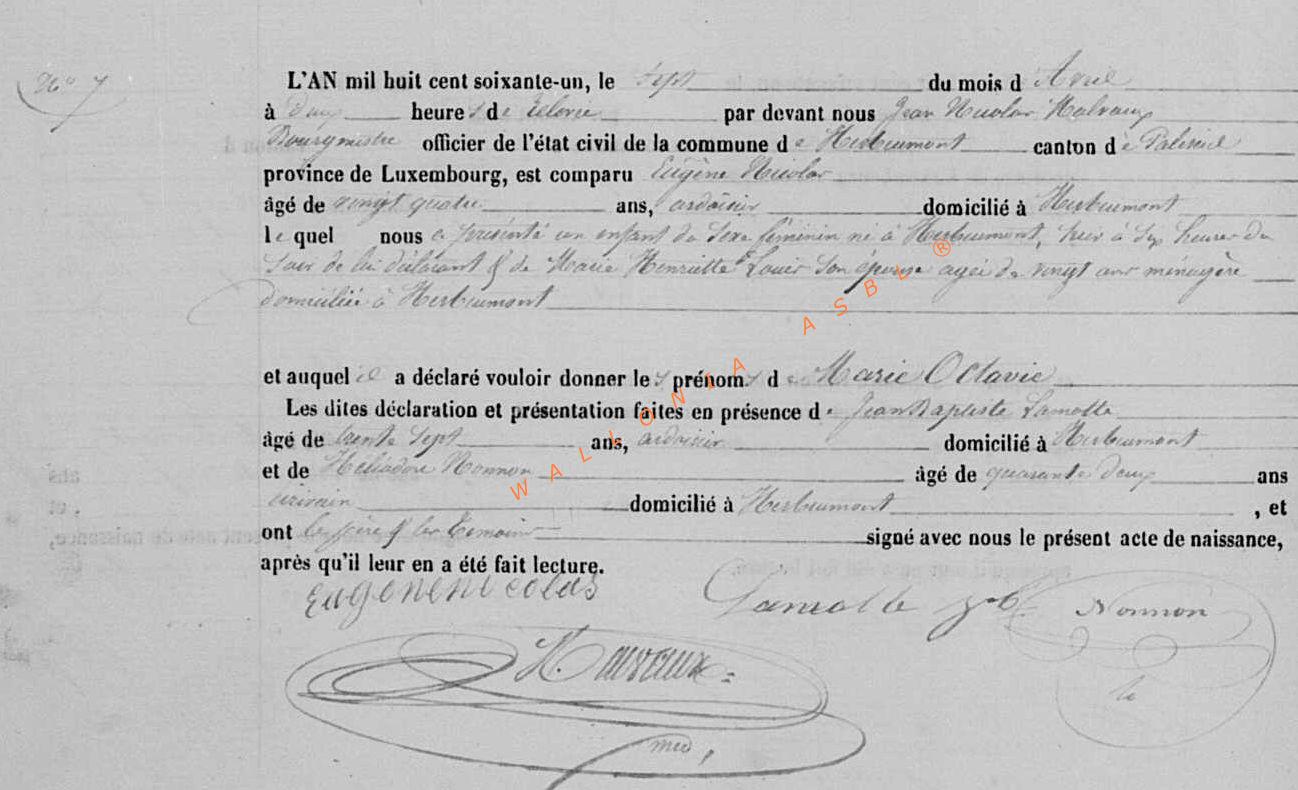 N° 7
L'AN mil huit cent soixante-un, le Sept du mois d'Avril
à Deux heures de par devant nous Jean Nicolas Malvaux
Bourgmestre officier de l'état civil de la commune de Herbeumont canton de Paliseul
province de Luxembourg, est comparu Eugène Nicolas
âgé de vingt quatre ans, ardoisier domicilié à Herbeumont
lequel nous a présenté un enfant du Sexe féminin né à Herbeumont, hier à Sep heures du
Soir de lui déclarant & de Marie Henriette Louis Son épouse agée de vingt ans ménagère
domiciliée à Herbeumont
et auquel il a déclaré vouloir donner les prénoms de Marie Octavie
Les dites déclaration et présentation faites en présence de Jean Baptiste Lamotte
âgé de trente Sept ans, ardoisier domicilié à Herbeumont
et de Héliodore Nonnon âgé de quarante deux ans
domicilié à Herbeumont , et
ont les père & les témoins signé avec nous le présent acte de naissance,
après qu'il leur en a été fait lecture.
Eugene Nicolas Lamotte jb Nonnon
Mauvaux
WALLONIA ASBL ®